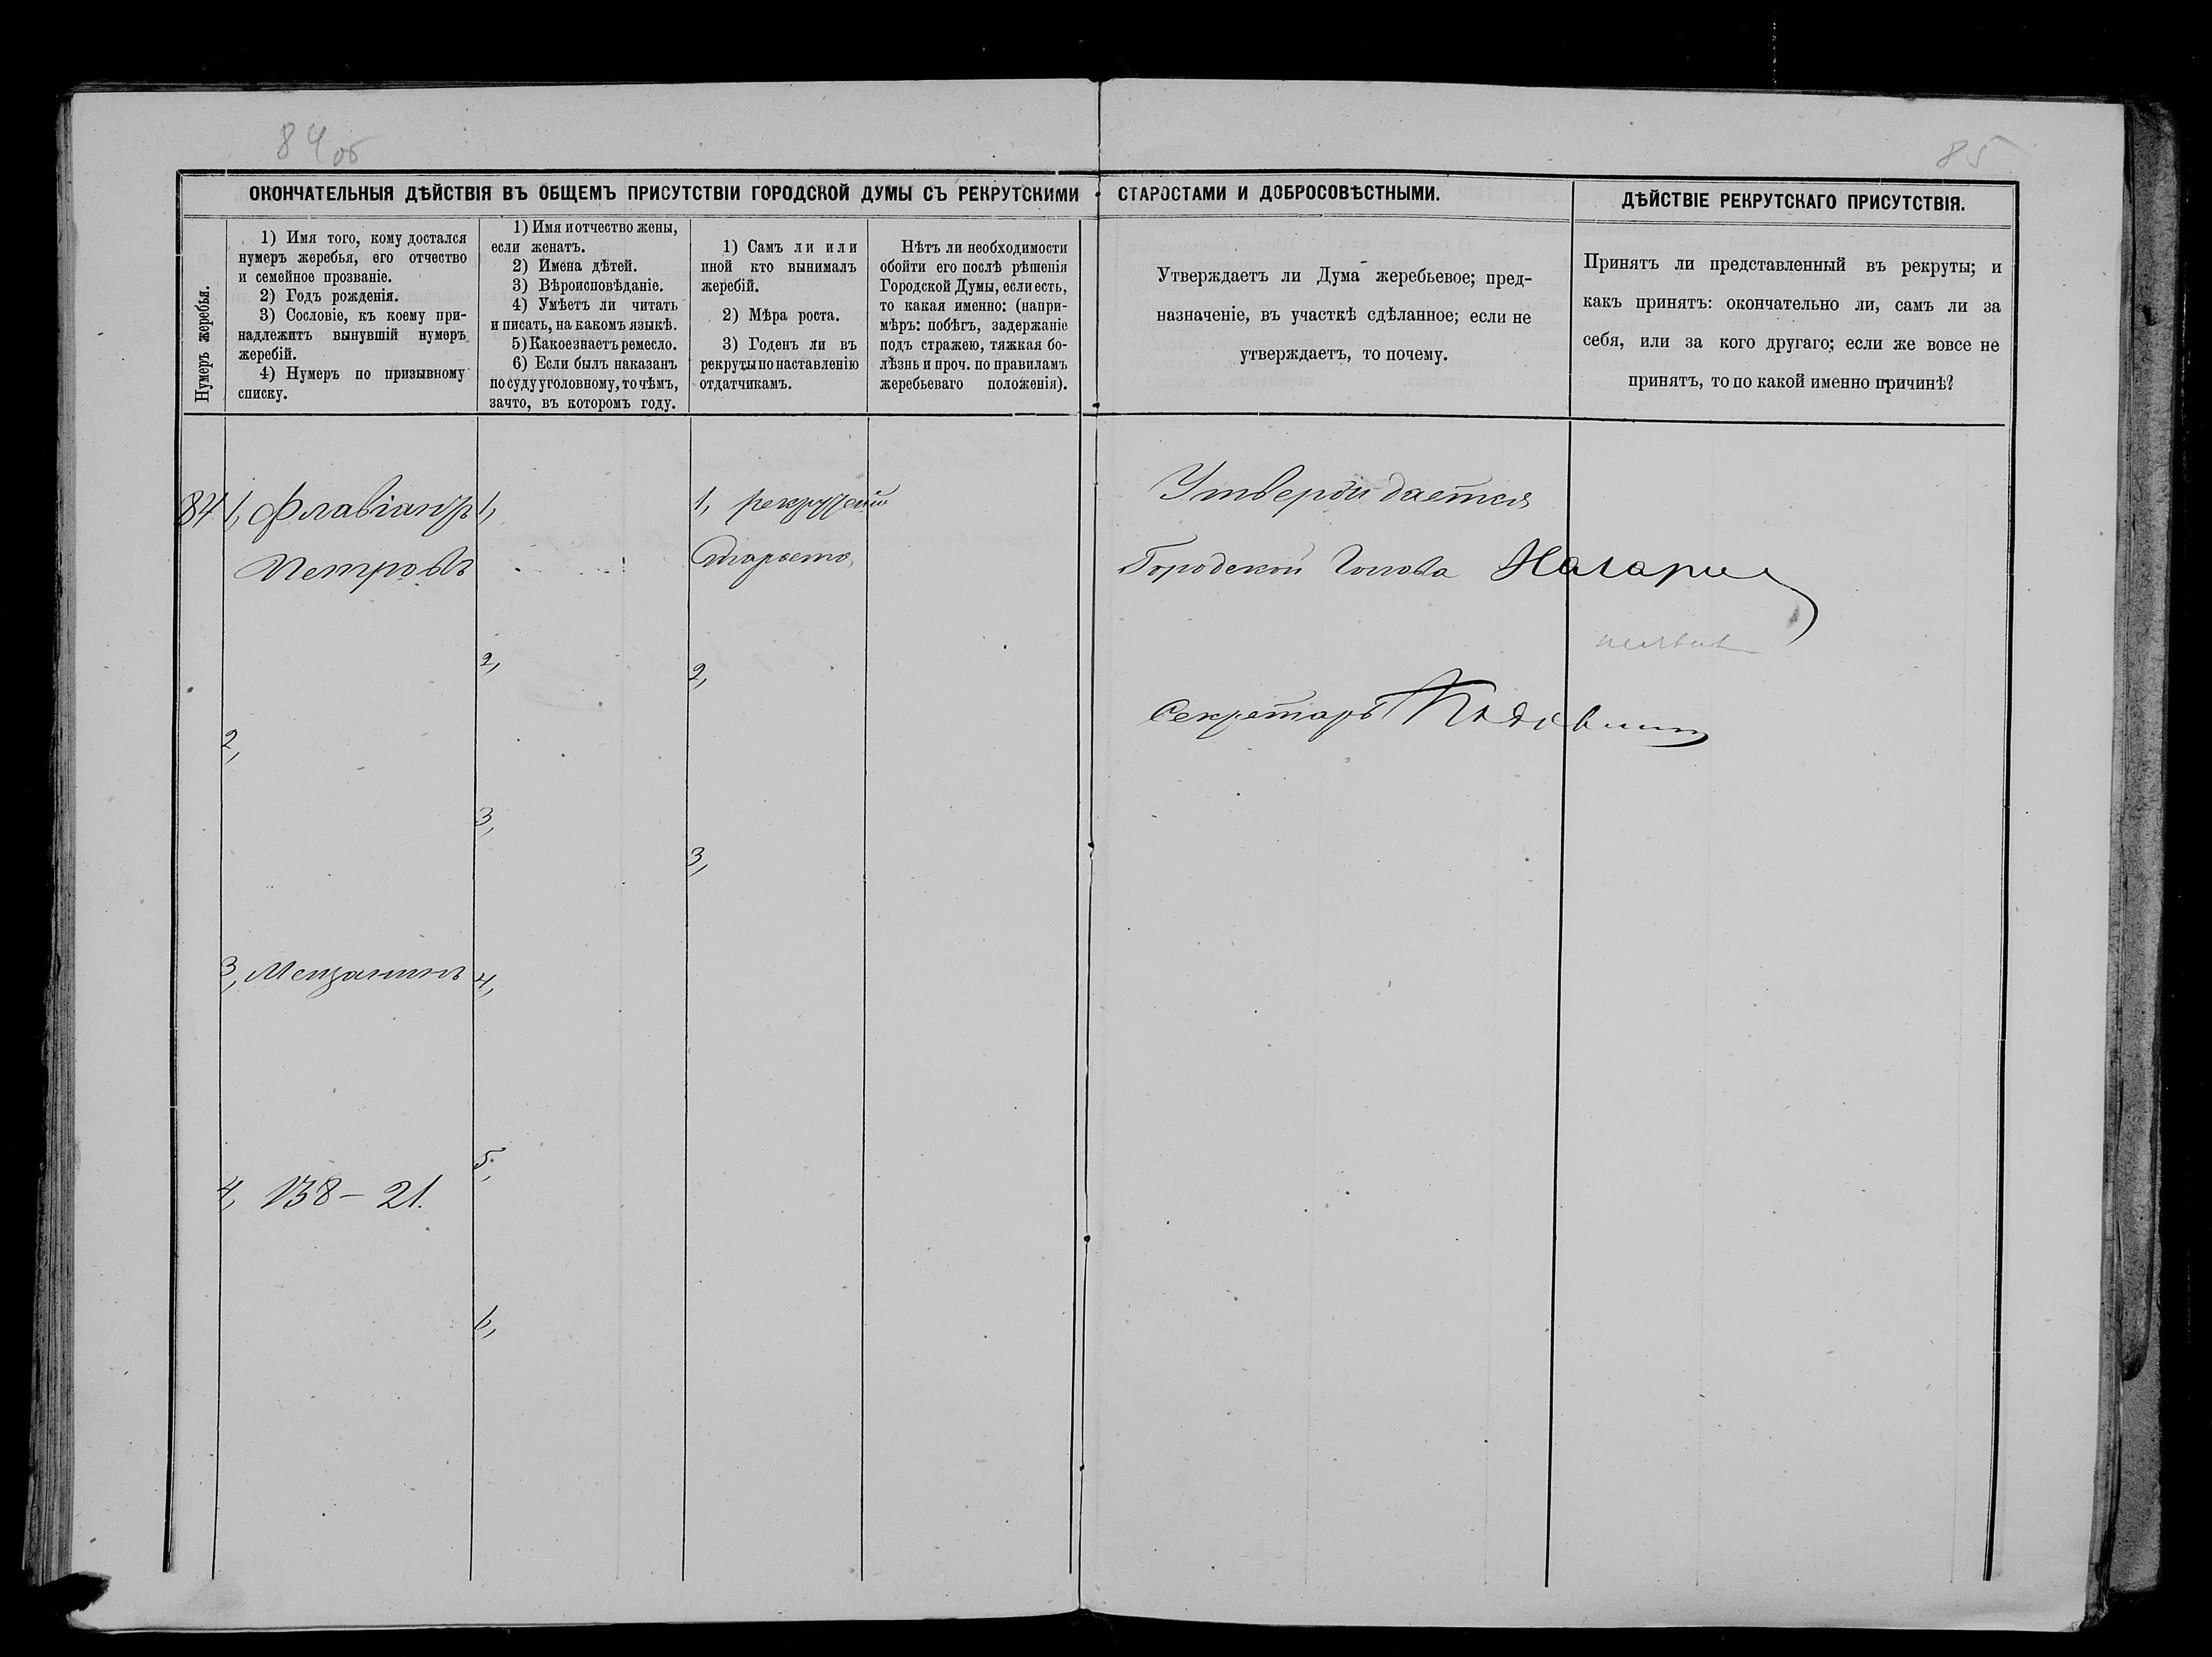 84 об
85
ОКОНЧАТЕЛЬНЫЯ ДѢЙСТВІЯ ВЪ ОБЩЕМЪ ПРИСУТСТВІИ ГОРОДСКОЙ ДУМЫ СЪ РЕКРУТСКИМИ СТАРОСТАМИ И ДОБРОСОВѢСТНЫМИ.
ДѢЙСТВІЕ РЕКРУТСКАГО ПРИСУТСТВІЯ.
Нумеръ жеребья.
1) Имя того, кому достался
нумеръ жеребья, его отчество
и семейное прозваніе.
2) Годъ рожденія.
3) Сословіе, къ коему при-
надлежитъ вынувшій нумеръ
жеребій.
4) Нумеръ по призывному
списку.
1) Имя и отчество жены,
если женатъ.
2) Имена дѣтей.
3) Вѣроисповѣданіе.
4) Умѣетъ ли читать
и писать, на какомъ языкѣ.
5) Какое знаетъ ремесло.
6) Если былъ наказанъ
по суду уголовному, то чѣмъ,
за что, въ которомъ году.
1) Самъ ли или
иной кто вынималъ
жеребій.
2) Мѣра роста.
3) Годенъ ли въ
рекруты по наставленію
отдатчикамъ.
Нѣтъ ли необходимости
обойти его послѣ рѣшенія
Городской Думы, если есть,
то какая именно: (напри-
мѣръ: побѣгъ, задержаніе
подъ стражею, тяжкая бо-
лѣзнь и проч. по правиламъ
жеребьеваго положенія).
Утверждаетъ ли Дума жеребьевое; пред-
назначеніе, въ участкѣ сдѣланное; если не
утверждаетъ, то почему.
Принятъ ли представленный въ рекруты; и
какъ принятъ: окончательно ли, самъ ли за
себя, или за кого другаго; если же вовсе не
принятъ, то по какой именно причинѣ?
84
1, Флавіанъ
Петровъ
2,
3, Мещанинъ
4, 138 – 21.
1,
2,
3,
4,
5,
6,
1, рекрутскій
староста,
2,
3,
Утверждается
Городской Голова
Секретарь